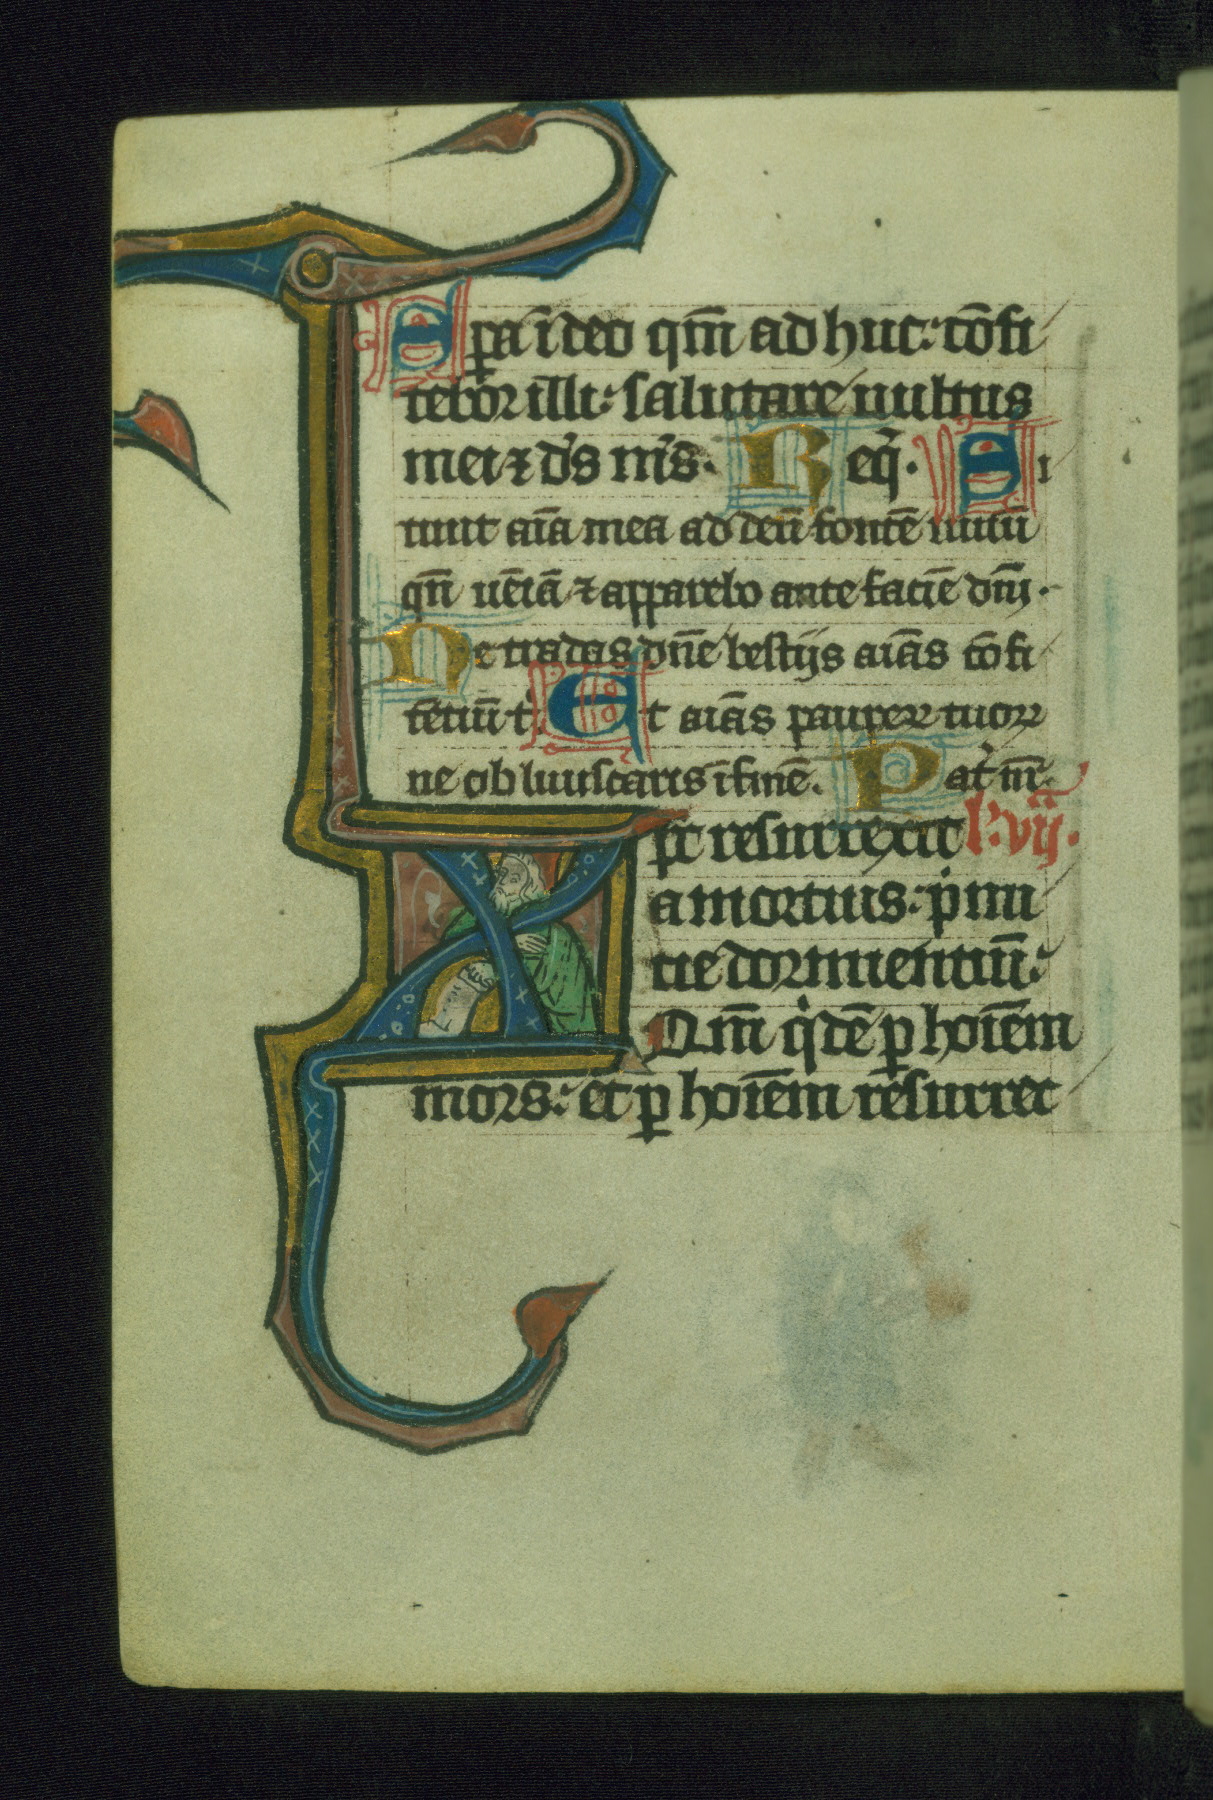 Spera i deo qm̄ ad huc: cōfi
tebor illi: salutare uultus
mei ⁊ d's m's. Req̄. Si
tiuit aīa mea ad deū fontē uiuū
qn̄ ueniā ⁊ apparebo ante faciē dn̄i.
Ne tradas dn̄e bestijs aīas cōfi
tētiū t'. Et aīas pauperꝝ tuoꝝ
ne obliuiscaris ī finē. Pat' nr̄.
Xp̄c resurrexit l'. vij.
a mortuis: p'mi
tie dormientiū:
Qm̄ q'dē ꝑ hoīem
mors: et ꝑ hoīem resurrec